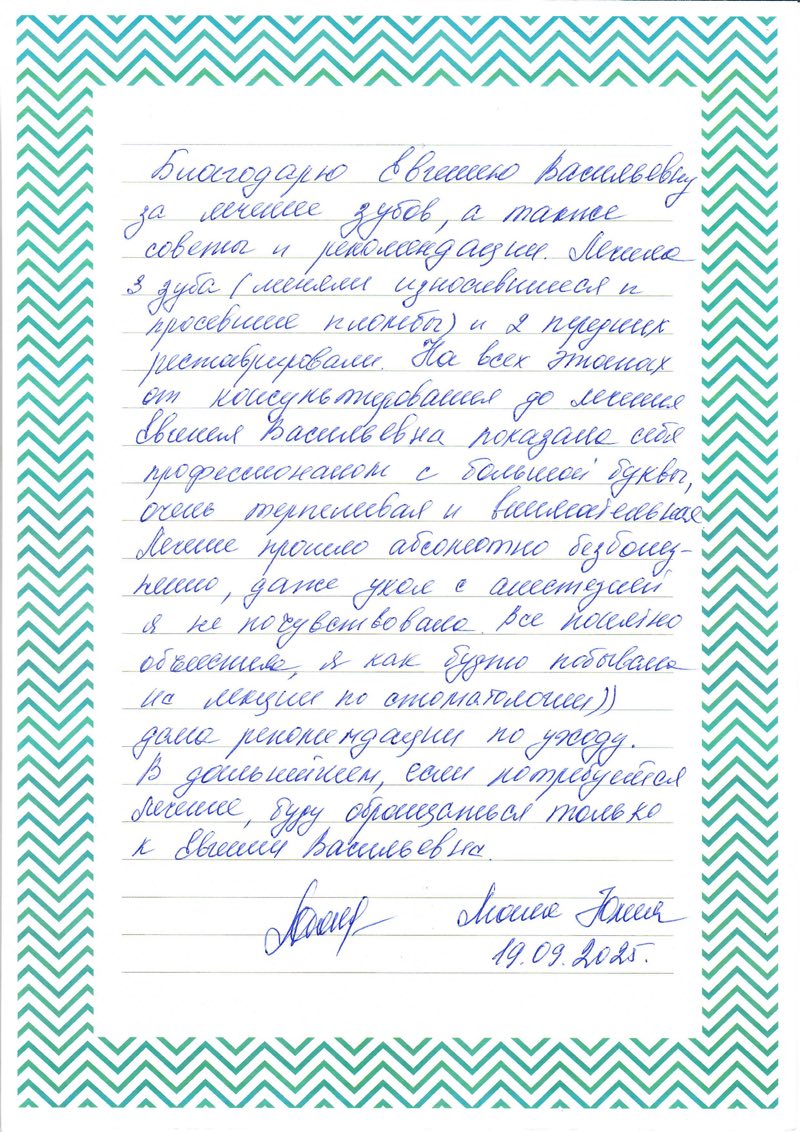 Благодарю Евгению Васильевну
за лечение зубов, а также
советы и рекомендации. Лечила
3 зуба (меняли износившиеся и
просевшие пломбы) и 2 передних
реставрировали. На всех этапах
от консультирования до лечения
Евгения Васильевна показала себя
профессионалом с большой буквы,
очень терпеливая и внимательная.
Лечение прошло абсолютно безболез-
ненно, даже укол с анестезией
я не почувствовала. Все понятно
объяснила, я как будто побывала
на лекции по стоматологии))
дала рекомендации по уходу.
В дальнейшем, если потребуется
лечение, буду обращаться только
к Евгении Васильевне.
Юлия
19.09.2025.